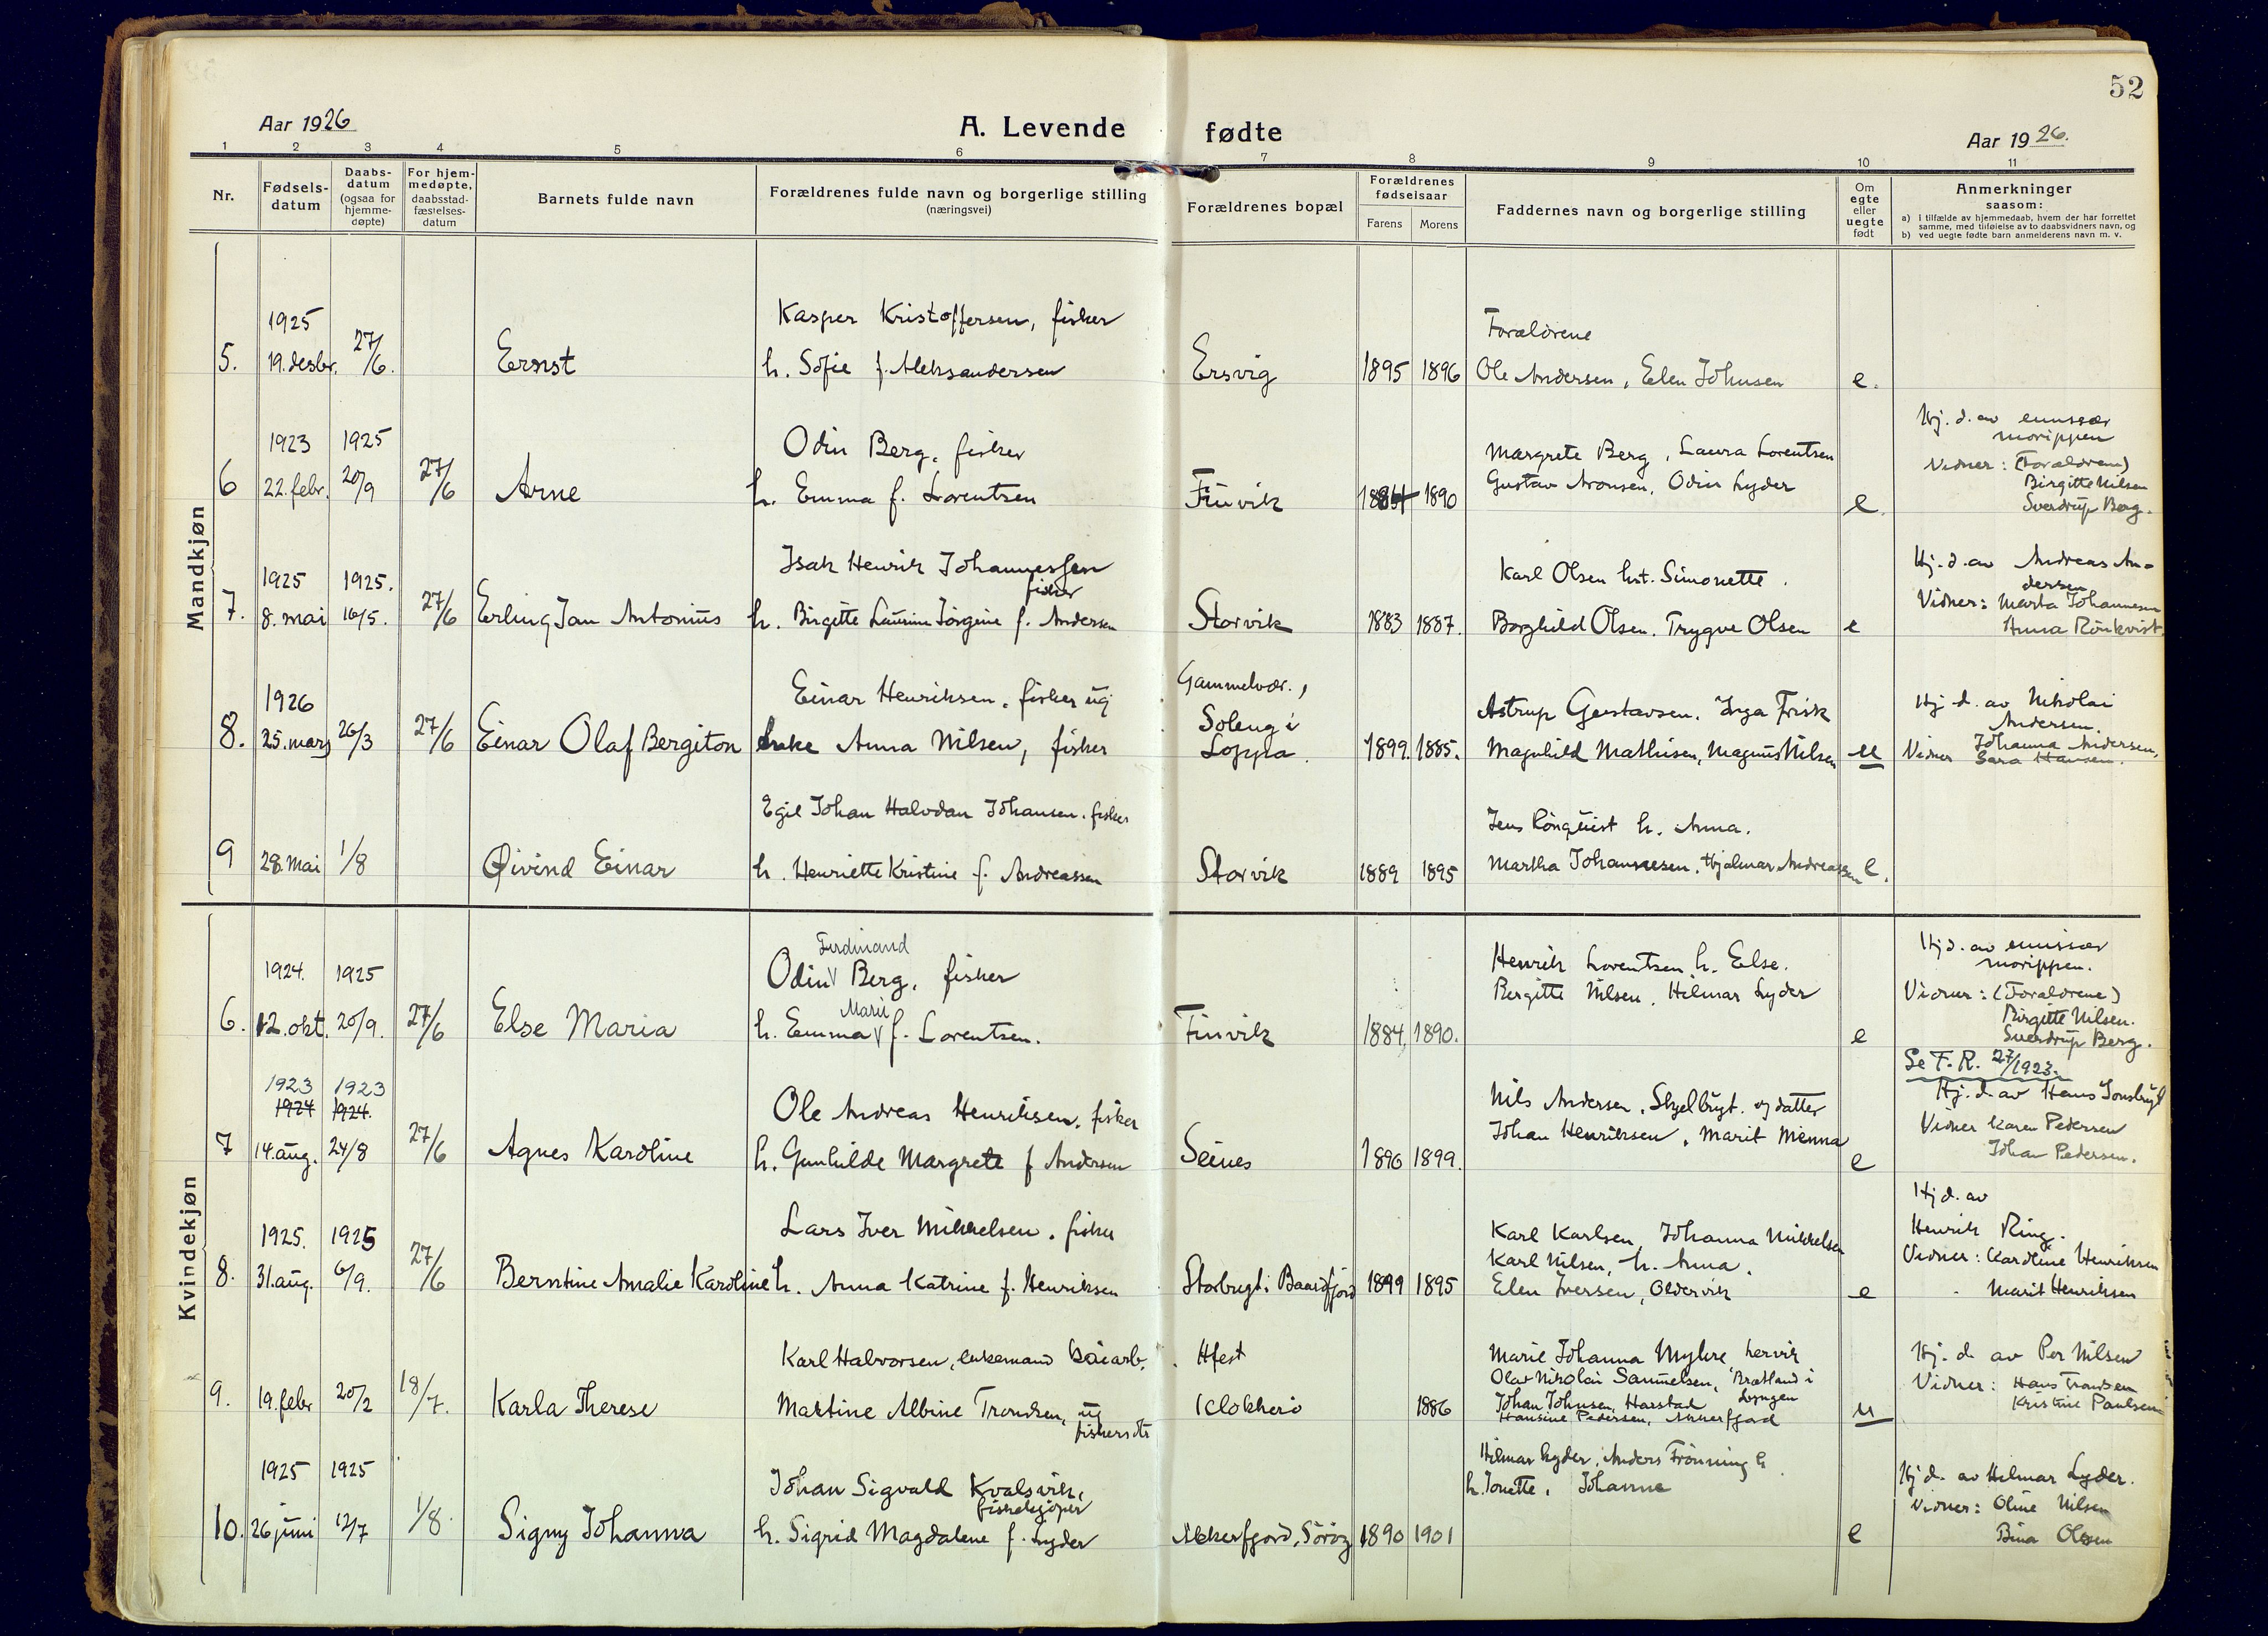 52
Aar 1926
A. Levende fødte
Aar 1926.
1 2 3 4 5 6 7 8 9 10 11
Nr.
Fødsels-datum
Daabs-datum (ogsaa for hjemme-døpte)
For hjem-medøpte, daabsstad-fæstelses-datum
Barnets fulde navn
Forældrenes fulde navn og borgerlige stilling (næringsvei)
Forældrenes bopæl
Forældrenes fødselsaar
Farens Morens
Faddernes navn og borgerlige stilling
Om egte eller uegte født
Anmerkninger saasom:
a) i tilfælde av hjemmedaab, hvem der har forrettet samme, med tilføielse av to daabsvidners navn, og
b) ved uegte fødte barn anmelderens navn m. v.
Mandkjøn
1925 Kasper Kristoffersen, fisker Forældrene
5. 19. desbr. 27/6. Ernst h. Sofie f. Aleksandersen Ersvig 1895 1896 Ole Andersen, Elen Johnsen e.
1923 1925 Odin Berg, fisker Margrete Berg, Laura Lorentsen Hj. d. av emissær morippen
6 22. febr. 20/9 27/6 Arne h. Emma f. Lorentsen Finvik 1884 1890 Gustav Aronsen, Odin Lyder e. Vidner: (Forældrene) Birgitte Nilsen Sverdrup Berg.
1925 1925. Isak Henrik Johannessen fisker Karl Olsen hst. Simonette. Hj. d. av Andreas Andersen
7. 8. mai 16/5. 27/6 Erling Jan Antonius h. Birgitte Laurine Jørgine f. Andersen Storvik 1883 1887. Borghild Olsen. Trygve Olsen e Vidner: Marta Johannesen Anna Rönkvist.
1926 Einar Henriksen, fisker ug Gammelvær., Astrup Gustavsen. Inga Frisk Hj. d. av Nikolai Andersen.
8. 25. mars 26/3 27/6 Einar Olaf Bergiton enke Anna Nilsen, fisker Soleng i Loppa. 1899. 1885. Magnhild Mathisen, Magnus Nilsen u Vidner Johanna Andersen, Sara Hansen.
Egil Johan Halvdan Johansen. fisker Jens Rönquist h. Anna.
9 28. mai 1/8 Øivind Einar h. Henriette Kristine f. Andreassen Storvik 1889 1895 Martha Johannesen. Hjalmar Andreassen e.
Kvindekjøn
1924. 1925 Odin Ferdinand Berg, fisker Henrik Lorentsen h. Else. Hj d. av emissær morippen.
6. 12. okt. 20/9. 27/6 Else Maria h. Emma Marie f. Lorentsen. Finvik 1884, 1890. Bergitte Nilsen. Hilmar Lyder e Vidner: (Forældrene) Birgitte Nilsen. Sverdrup Berg.
Se F. R. 27/1923.
1923 1923
1924 1924. Ole Andreas Henriksen, fisker Nils Andersen, Skjelbugt. og datter Hj. d. av Hans
7 14. aug. 24/8 27/6 Agnes Karoline h. Gunhilde Margrete f Andersen Seines 1896 1899. Johan Henriksen, Marit Menna e Vidner Karen Pedersen Johan Pedersen.
1925. 1925 Lars Iver Mikkelsen, fisker Karl Karlsen, Johanna Mikkelsen Hj d. av Henrik Ring.
8. 31. aug. 6/9. 27/6 Berntine Amalie Karoline h. Anna Katrine f. Henriksen Storbugt i Baardfjord 1899 1895 Karl Nilsen, h. Anna. Elen Iversen, Oldervik e Vidner: Karoline Henriksen Marit Henriksen
Karl Halvorsen, enkemand kaiarb. Hfest Marie Johanna Myhre, Lervik Hj. d. av Per Nilsen
9. 19. febr 20/2 18/7. Karla Therese Martine Albine Trondsen, ug fiskersdtr Klokkerö 1886 Olav Nikolai Samuelsen, Brætland i Lyngen Johan Johnsen, Harstad Hansine Pedersen, Akkerfjord u Vidner: Hans Trondsen Kristine Paulsen
1925 1925 Johan Sigvald Kvalsvik, fiskekjøper Hilmar Lyder, Anders Frönning h. Hj d. av Hilmar Lyder.
10. 26 juni 12/7 1/8. Signy Johanna h. Sigrid Magdalene f. Lyder Akkerfjord, Sörög 1890 1901 h. Jonette, Johanne e Vidner: Oline Nilsen Bina Olsen